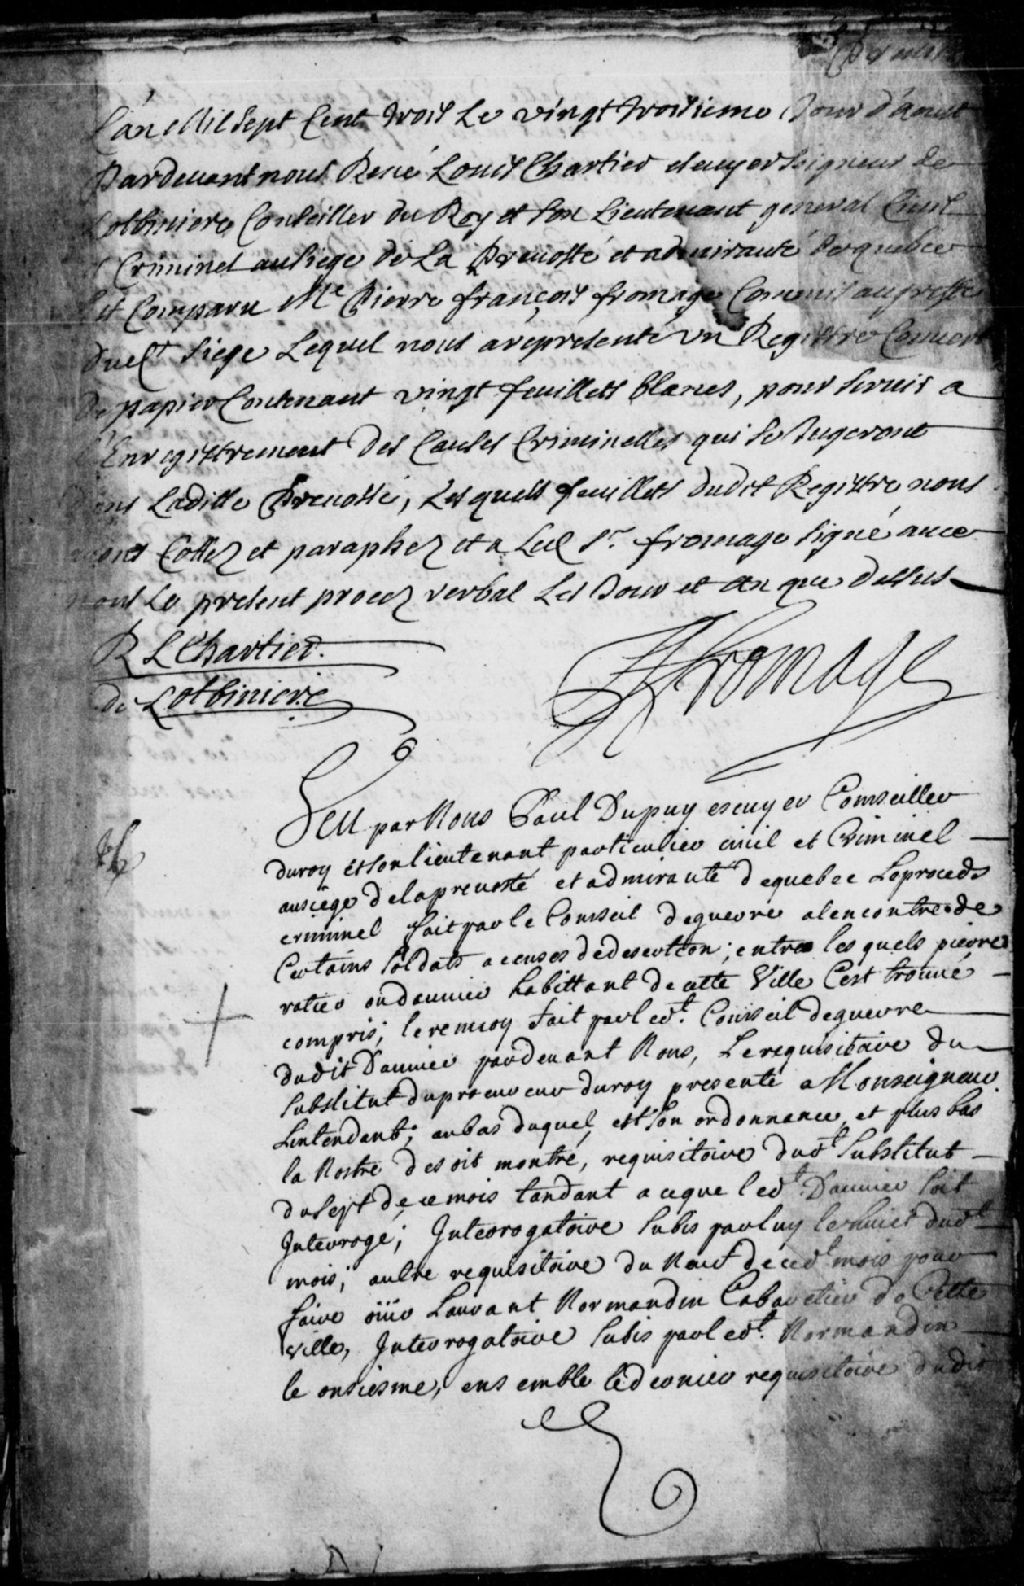 L'an Mil sept Cent trois Le vingt troisieme Jour d'Aoust
Pardeuant nous René Louis Chartier escuyer seigneur de
Lotbiniere Conseiller du Roy et son Lieutenant general Ciuil
et Criminel au siege de La Preuosté et admirauté de quebec
Est Comparu Me Pierre françois fromage Commis au greffe
dud.t siege Lequel nous a representé un Registre Couuert
de papier Contenant vingt feuillets blancs, pour seruir a
l'Enregistrement des Causes Criminelles qui se Jugeront
dans Laditte Preuosté, Lesquels feuillets dudit Registre nous
auons Cottez et paraphez et a Led. Sr. fromage signé auec
nous Le present procez verbal Les Jour et an que dessus
R L Chartier
de Lotbiniere
fromage
Veu par Nous Paul Dupuy escuyer Conseiller
du roy et son lieutenant particulier ciuil et Criminel
au siege de la preuosté et admirauté de quebec Le procedé
criminel fait par le Conseil de guerre a lencontre de
Certains soldats accusés de desertion; entre les quels pierre
ratier ou daunier habittant de cette Ville C'est trouué
compris; le renuoy fait par led.t Conseil de guerre
dudit Daunier pardeuant Nous, Le requisitoire du
substitut du procureur du roy presenté a Monseigneur
Lintendant; au bas duquel est son ordonnance, et plus bas
la Nostre de soit montré, requisitoire dud.t substitut
du sept de ce mois tandant a ceque led.t Daunier soit
Interrogé; Interrogatoire subis par luy le huict dud.t
mois; autre requisitoire du Neuf de ced.t mois pour
faire oüir Laurant Normandin Cabaretier de Cette
Ville, Interrogatoire subis par led.t Normandin
le onsiesme, ensemble le dernier requisitoire dudit